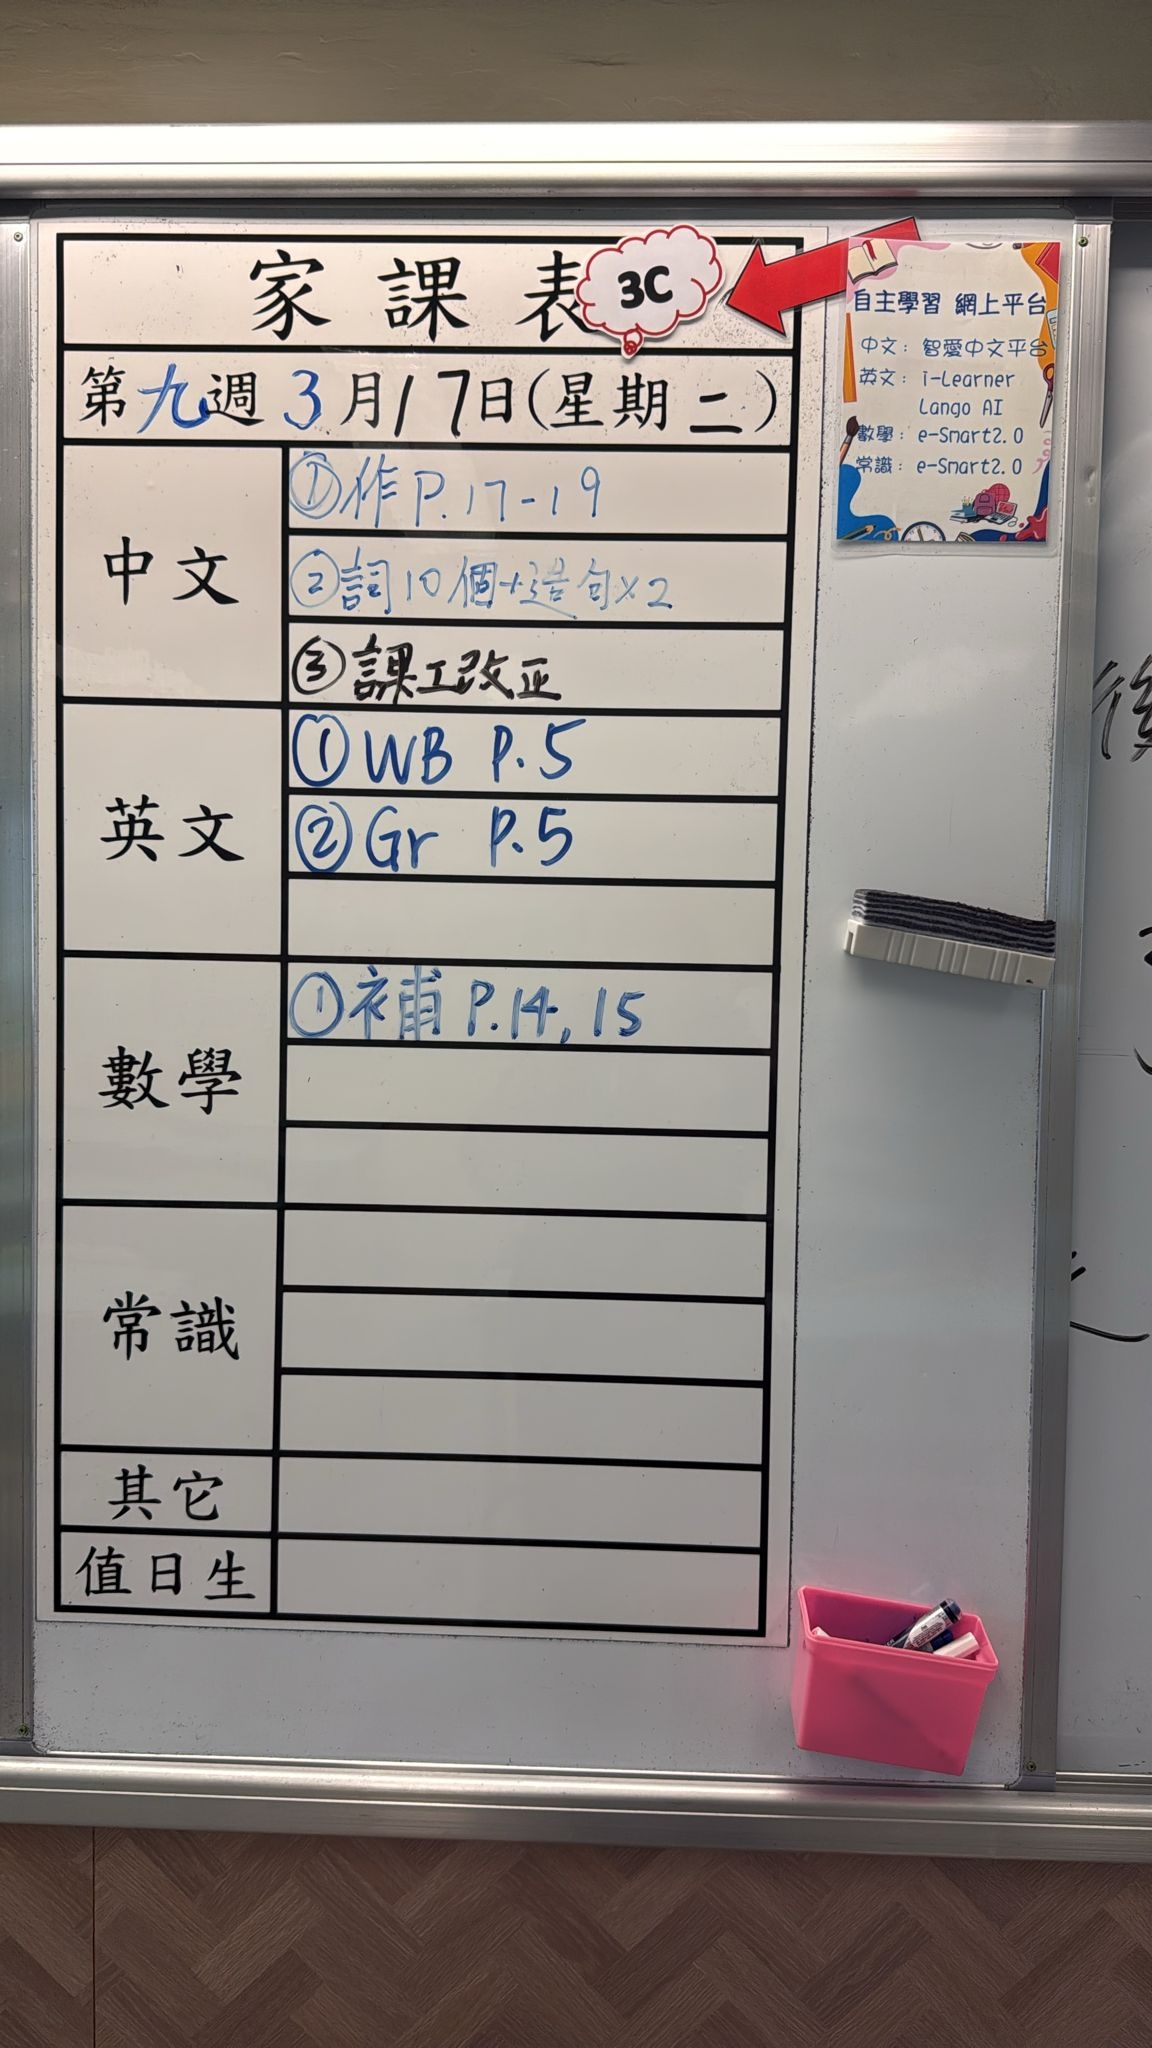 家課表
3C
第九週3月17日(星期二)
中文
①作P.17-19
②詞10個+造句x2
③課工改正
英文
①WB P.5
②Gr P.5
數學
①補P.14,15
常識
其它
值日生
自主學習 網上平台
中文：智愛中文平台
英文：i-Learner
Lango AI
數學：e-Smart2.0
常識：e-Smart2.0